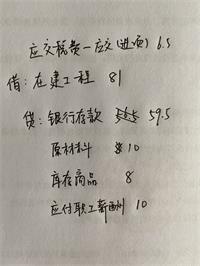 应交税费—应交(进项) 6.5
借: 在建工程 81
贷: 银行存款 59.5
原材料 10
库存商品 8
应付职工薪酬 10